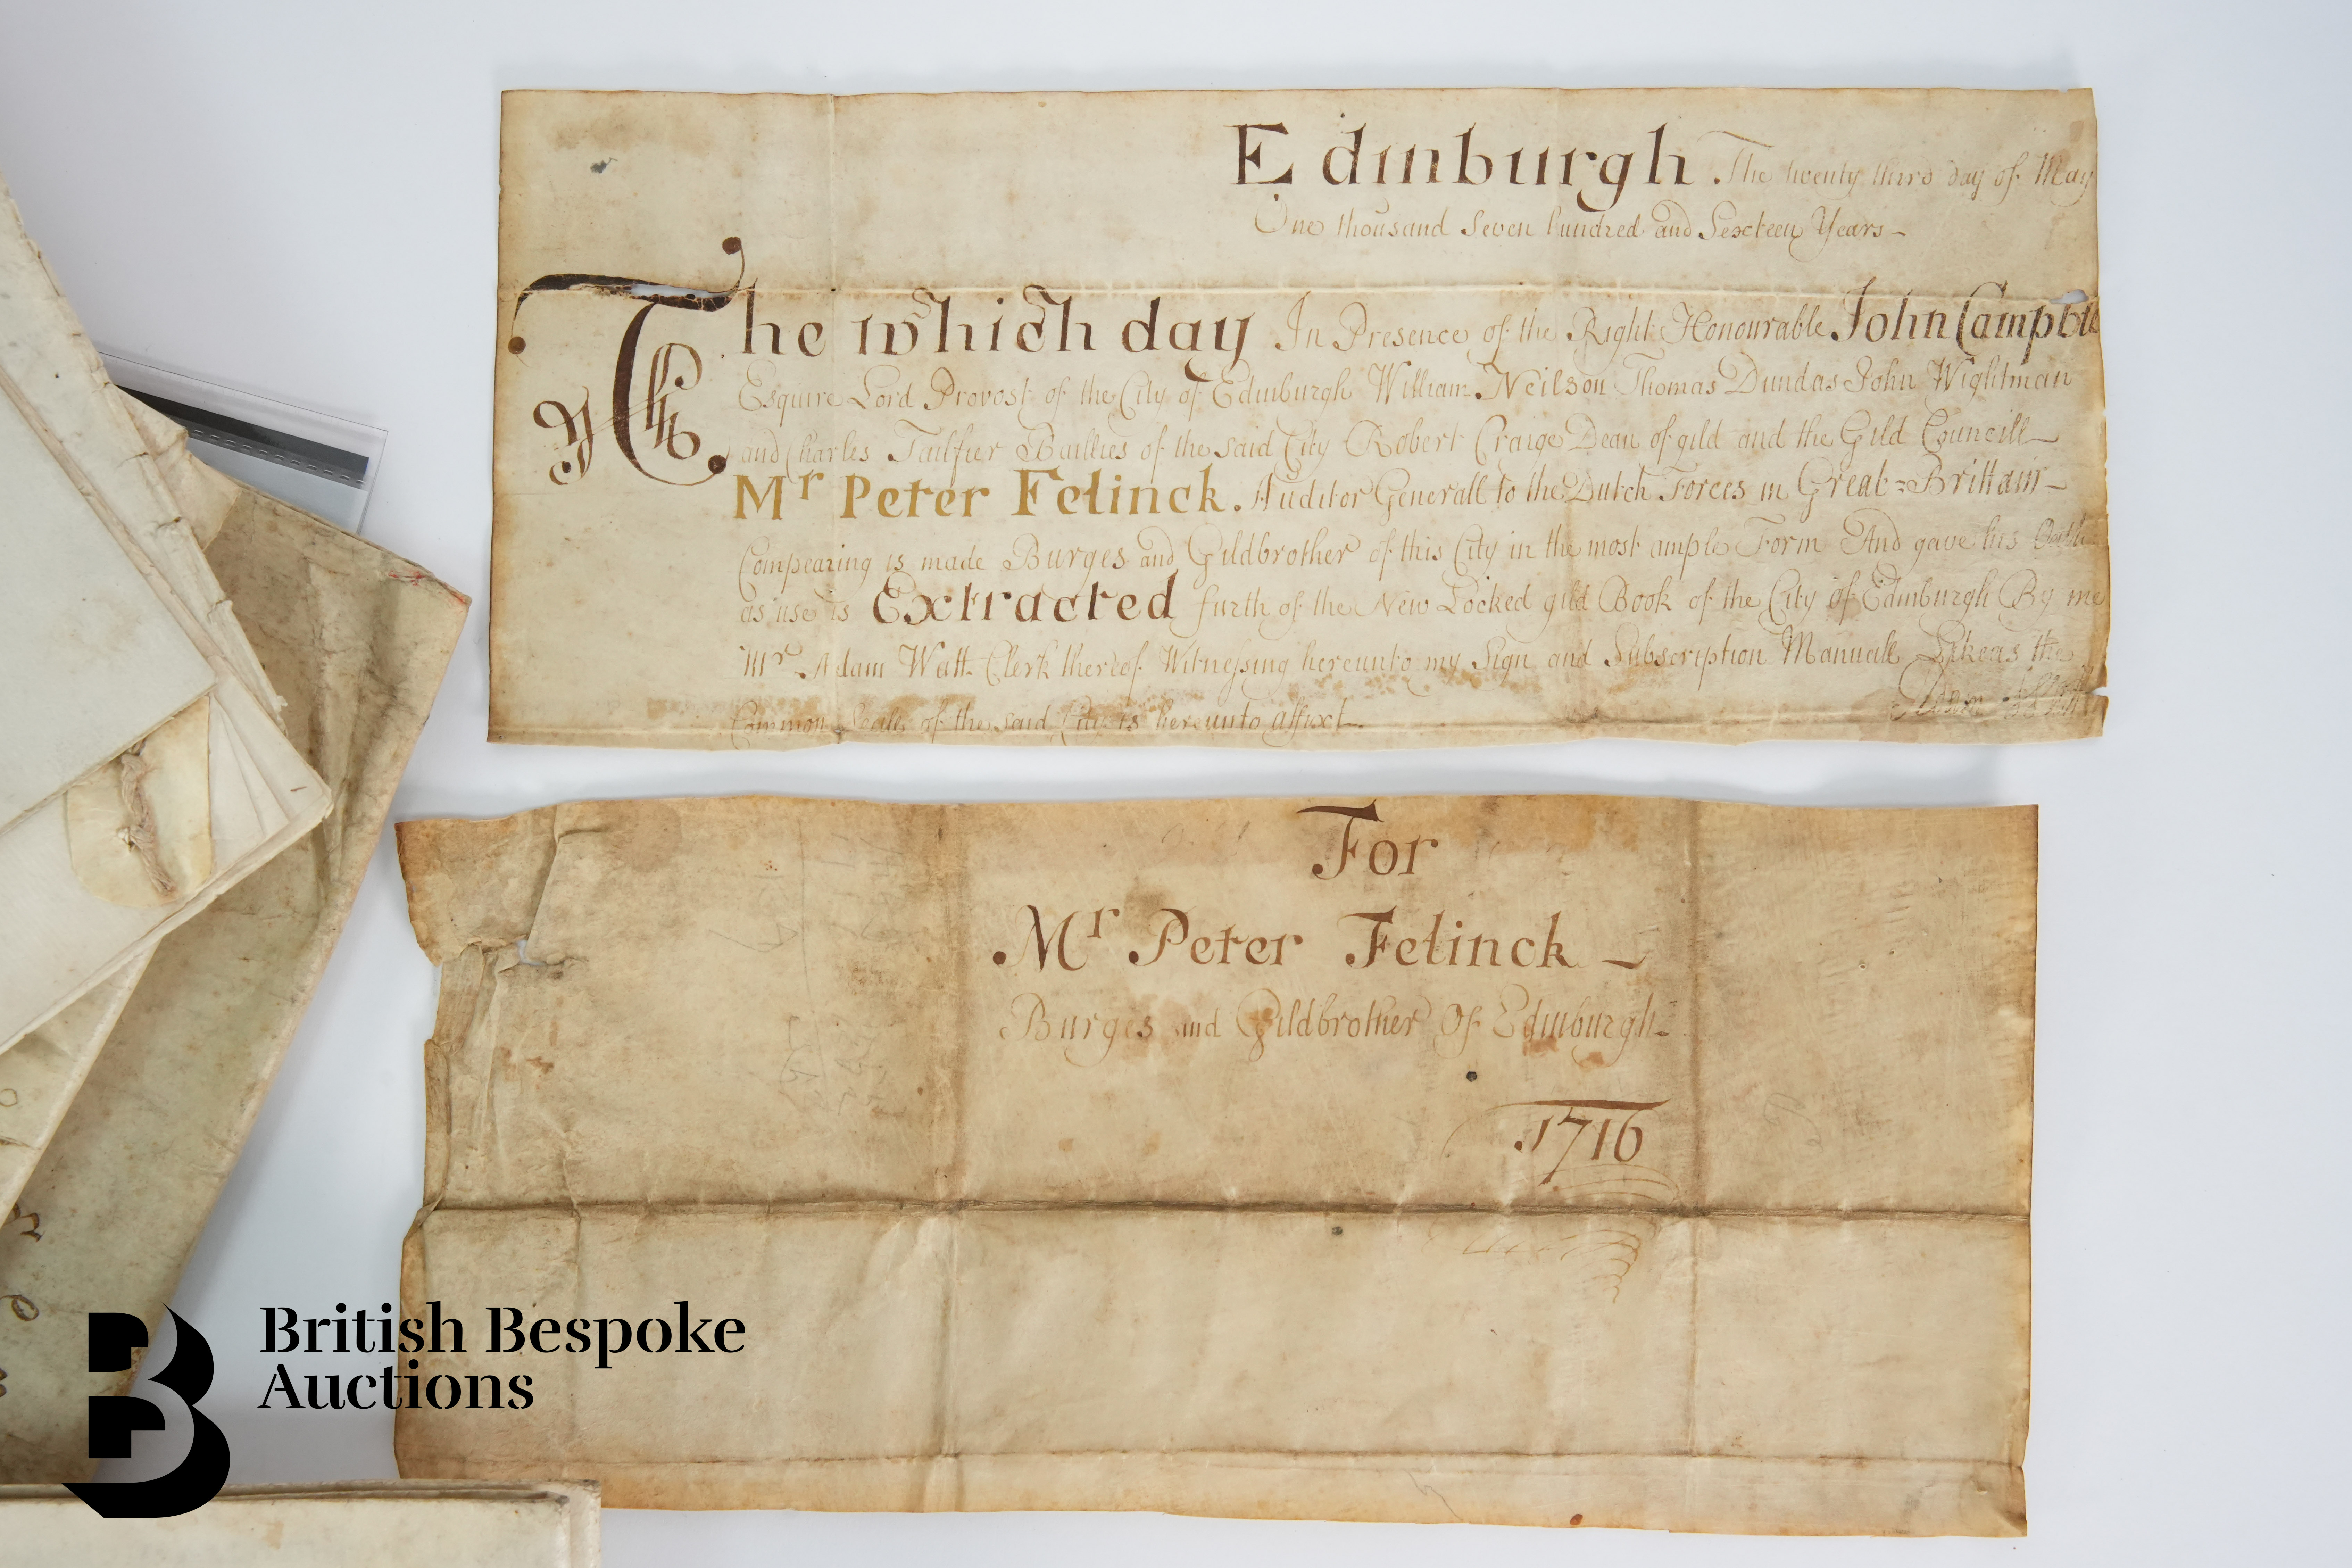 Edinburgh The twenty third day of May
One thousand Seven hundred and Sexteen Years
The which day In Presence of the Right Honourable John Campbe
Esquire Lord Provost of the City of Edinburgh William Neilson Thomas Dundas John Wightman
and Charles Tailfier Baillies of the said City Robert Craige Dean of gild and the Gild Councill
Mr Peter Felinck. Auditor Generall to the Dutch Forces in Great=Brittain
Compearing is made Burges and Gildbrother of this City in the most ample Form And gave his Oath
as use is Extracted furth of the New Locked gild Book of the City of Edinburgh By me
Mr Adam Watt Clerk thereof Witnessing hereunto my Sign and Subscription Manuall Likeas the
Common Seall of the said City is hereunto affixt
Adam Watt
For
Mr Peter Felinck
Burges and Gildbrother Of Edinburgh
1716
British Bespoke
Auctions